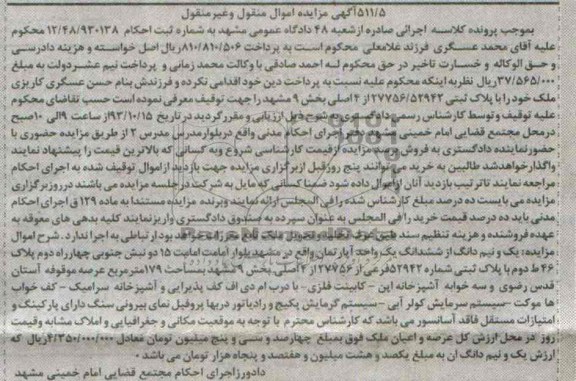 ۵۱۱/۵آگهی مزایده اموال منقول وغیرمنقول
بموجب پرونده کلاسه اجرائی صادره ازشعبه ۴۸ دادگاه عمومی مشهد به شماره ثبت احکام ۱۲/۴۸/۹۳۰۱۳۸ محکوم
علیه آقای محمد عسگری فرزند غلامعلی محکوم است به پرداخت ۸۱۰/۸۱۰/۵۰۶ریال اصل خواسته و هزینه دادرسی
و حق الوکاله و خسارت تاخیر در حق محکوم له احمد صادقی با وکالت محمد زمانی و پرداخت نیم عشردولت به مبلغ
۳۷/۵۶۵/۰۰۰ریال نظر به اینکه محکوم علیه نسبت به پرداخت دین خود اقدامی نکرده و فرزندش بنام حسن عسگری کاریزی
ملک خود را با پلاک ثبتی ۲۷۷۵۶/۵۲۹۴۲ از ۴ اصلی بخش ۹ مشهد را جهت توقیف معرفی نموده است حسب تقاضای محکوم
علیه توقیف و توسط کارشناس رسمی دادگستری بشرح ذیل ارزیابی و مقرر گردید در تاریخ ۹۳/۱۰/۱۵از ساعت ۹الی ۱۰صبح
درمحل مجتمع قضایی امام خمینی مشهد دفتر اجرای احکام مدنی واقع دربلوارمدرس مدرس ۲ از طریق مزایده حضوری با
حضورنماینده دادگستری به فروش برسد مزایده ازقیمت کارشناسی شروع وبه کسانی که بالاترین قیمت را پیشنهاد نمایند
واگذارخواهدشد طالبین به خرید می توانند پنج روزقبل ازبرگزاری مزایده جهت بازدید ازاموال توقیف شده به اجرای احکام
مراجعه نمایند تاترتیب بازدید آنان ازاموال داده شود ضمنا کسانی که مایل به شرکت در جلسه مزایده می باشند درروزبرگزاری
مزایده می بایست ده درصد مبلغ کارشناس شده رافی المجلس ارائه نمایند وبرنده مزایده مستندا به ماده ۱۲۹ ق اجرای احکام
مدنی باید ده درصد قیمت خرید رافی المجلس به عنوان سپرده به صندوق دادگستری واریزنمایند کلیه بدهی های معوقه به
عهده فروشنده و هزینه تنظیم سند طبق عرف محله و تحویل ملک دفع خواهد بود ارتباطی به اجرا ندارد. شرح اموال
مزایده: یک و نیم دانگ از ششدانگ یک واحد آپارتمان واقع در مشهد بلوار امامت امامت ۱۵ دو نبش جنوبی چهارراه دوم پلاک
۴۶ ط دوم با پلاک ثبتی شماره ۵۲۹۴۲فرعی از ۲۷۷۵۶ از ۴ اصلی بخش ۹ مشهد بمساحت ۱۷۹مترمربع عرصه موقوفه آستان
قدس رضوی و سه خوابه آشپزخانه اپن - کابینت فلزی - با درب ام دی اف کف پذیرایی و آشپزخانه سرامیک - کف خواب
ها موکت -سیستم سرمایش کولر آبی -سیستم گرمایش پکیج و رادیاتور دربها پروفیل نمای بیرونی سنگ دارای پارکینگ و
امتیازات مستقل فاقد آسانسور می باشد که کارشناس محترم با توجه به موقعیت مکانی و جغرافیایی و املاک مشابه وقیمت
روز در محل ارزش کل عرصه و اعیان ملک فوق بمبلغ چهارصد و سی و پنج میلیون تومان معادل ۴/۳۵۰/۰۰۰/۰۰۰ریال که
ارزش یک و نیم دانگ ان به مبلغ یکصد و هشت میلیون و هفتصد و پنجاه هزار تومان می باشد.
دادورزاجرای احکام مجتمع قضایی امام خمینی مشهد